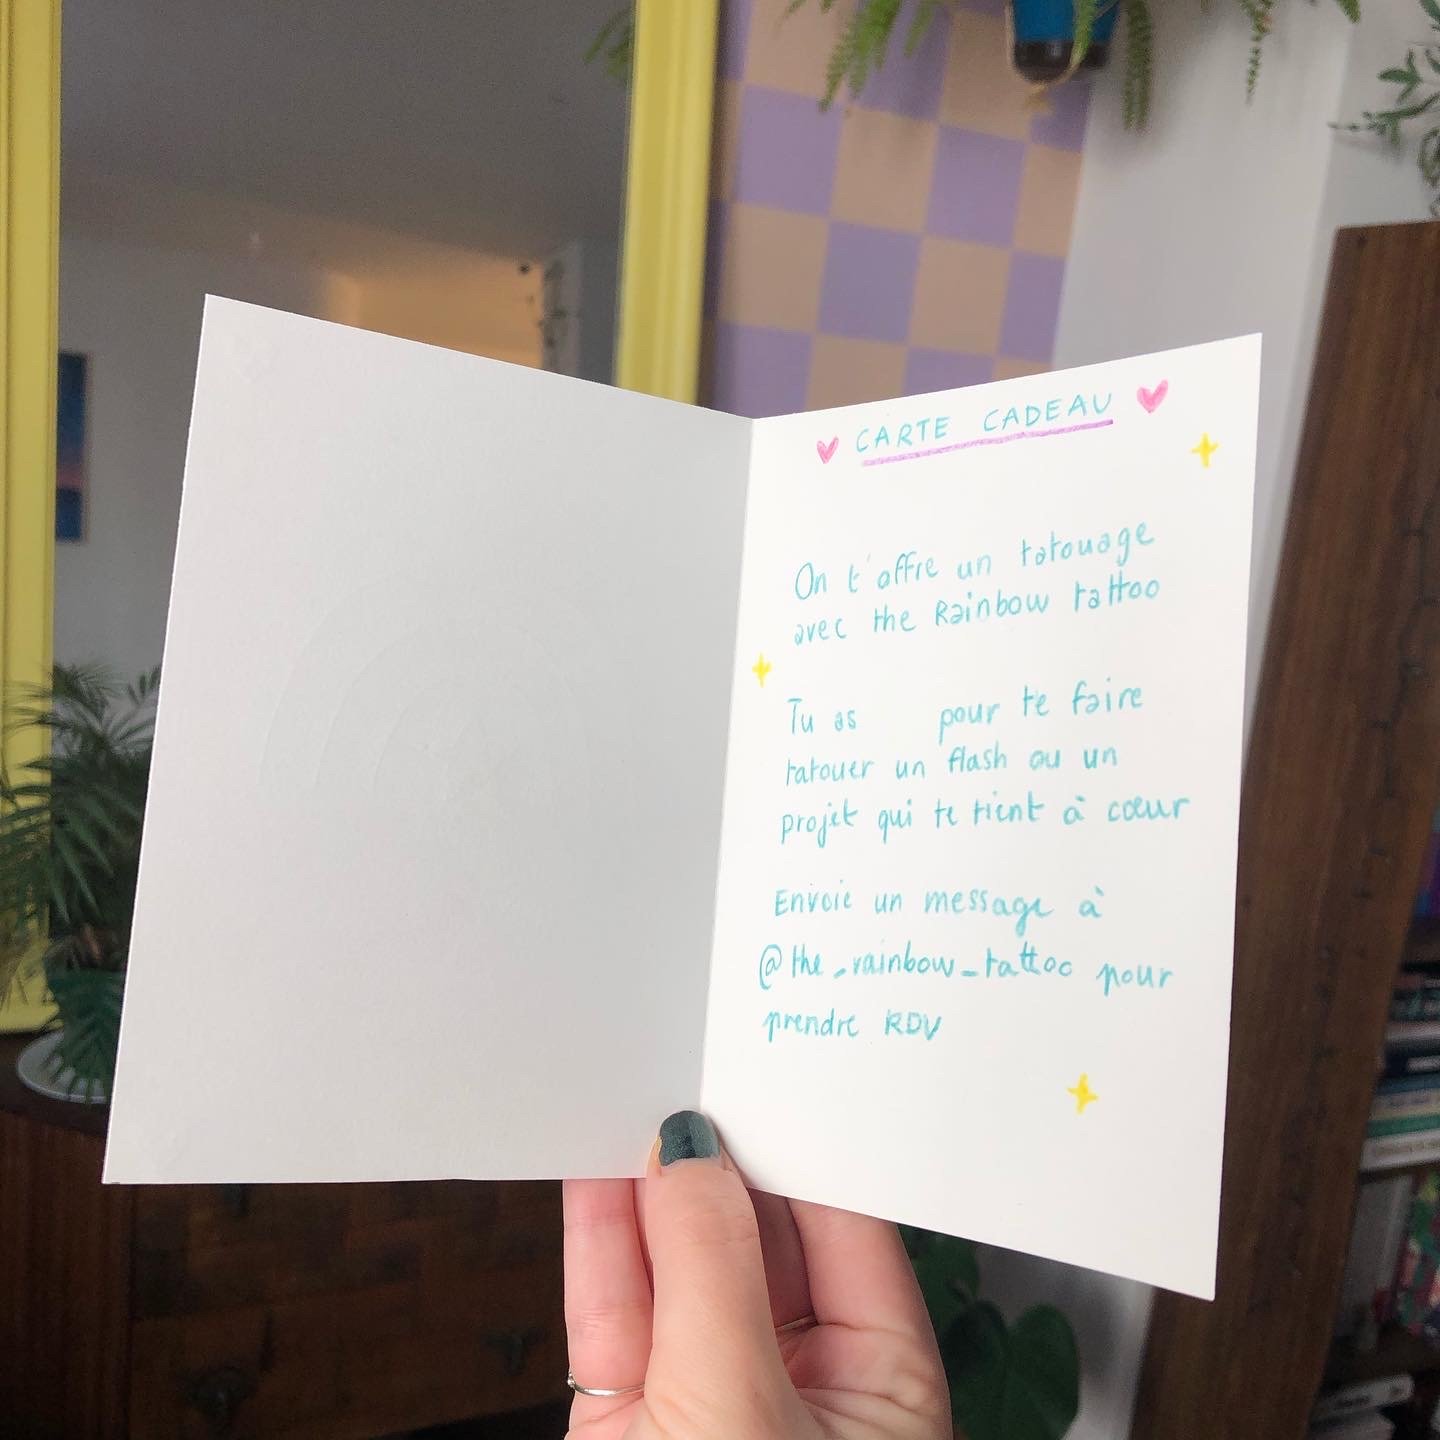 CARTE CADEAU
On t'offre un tatouage
avec the Rainbow tattoo
Tu as pour te faire
tatouer un flash ou un
projet qui te tient à cœur
Envoie un message à
@the_rainbow_tattoo pour
prendre RDV